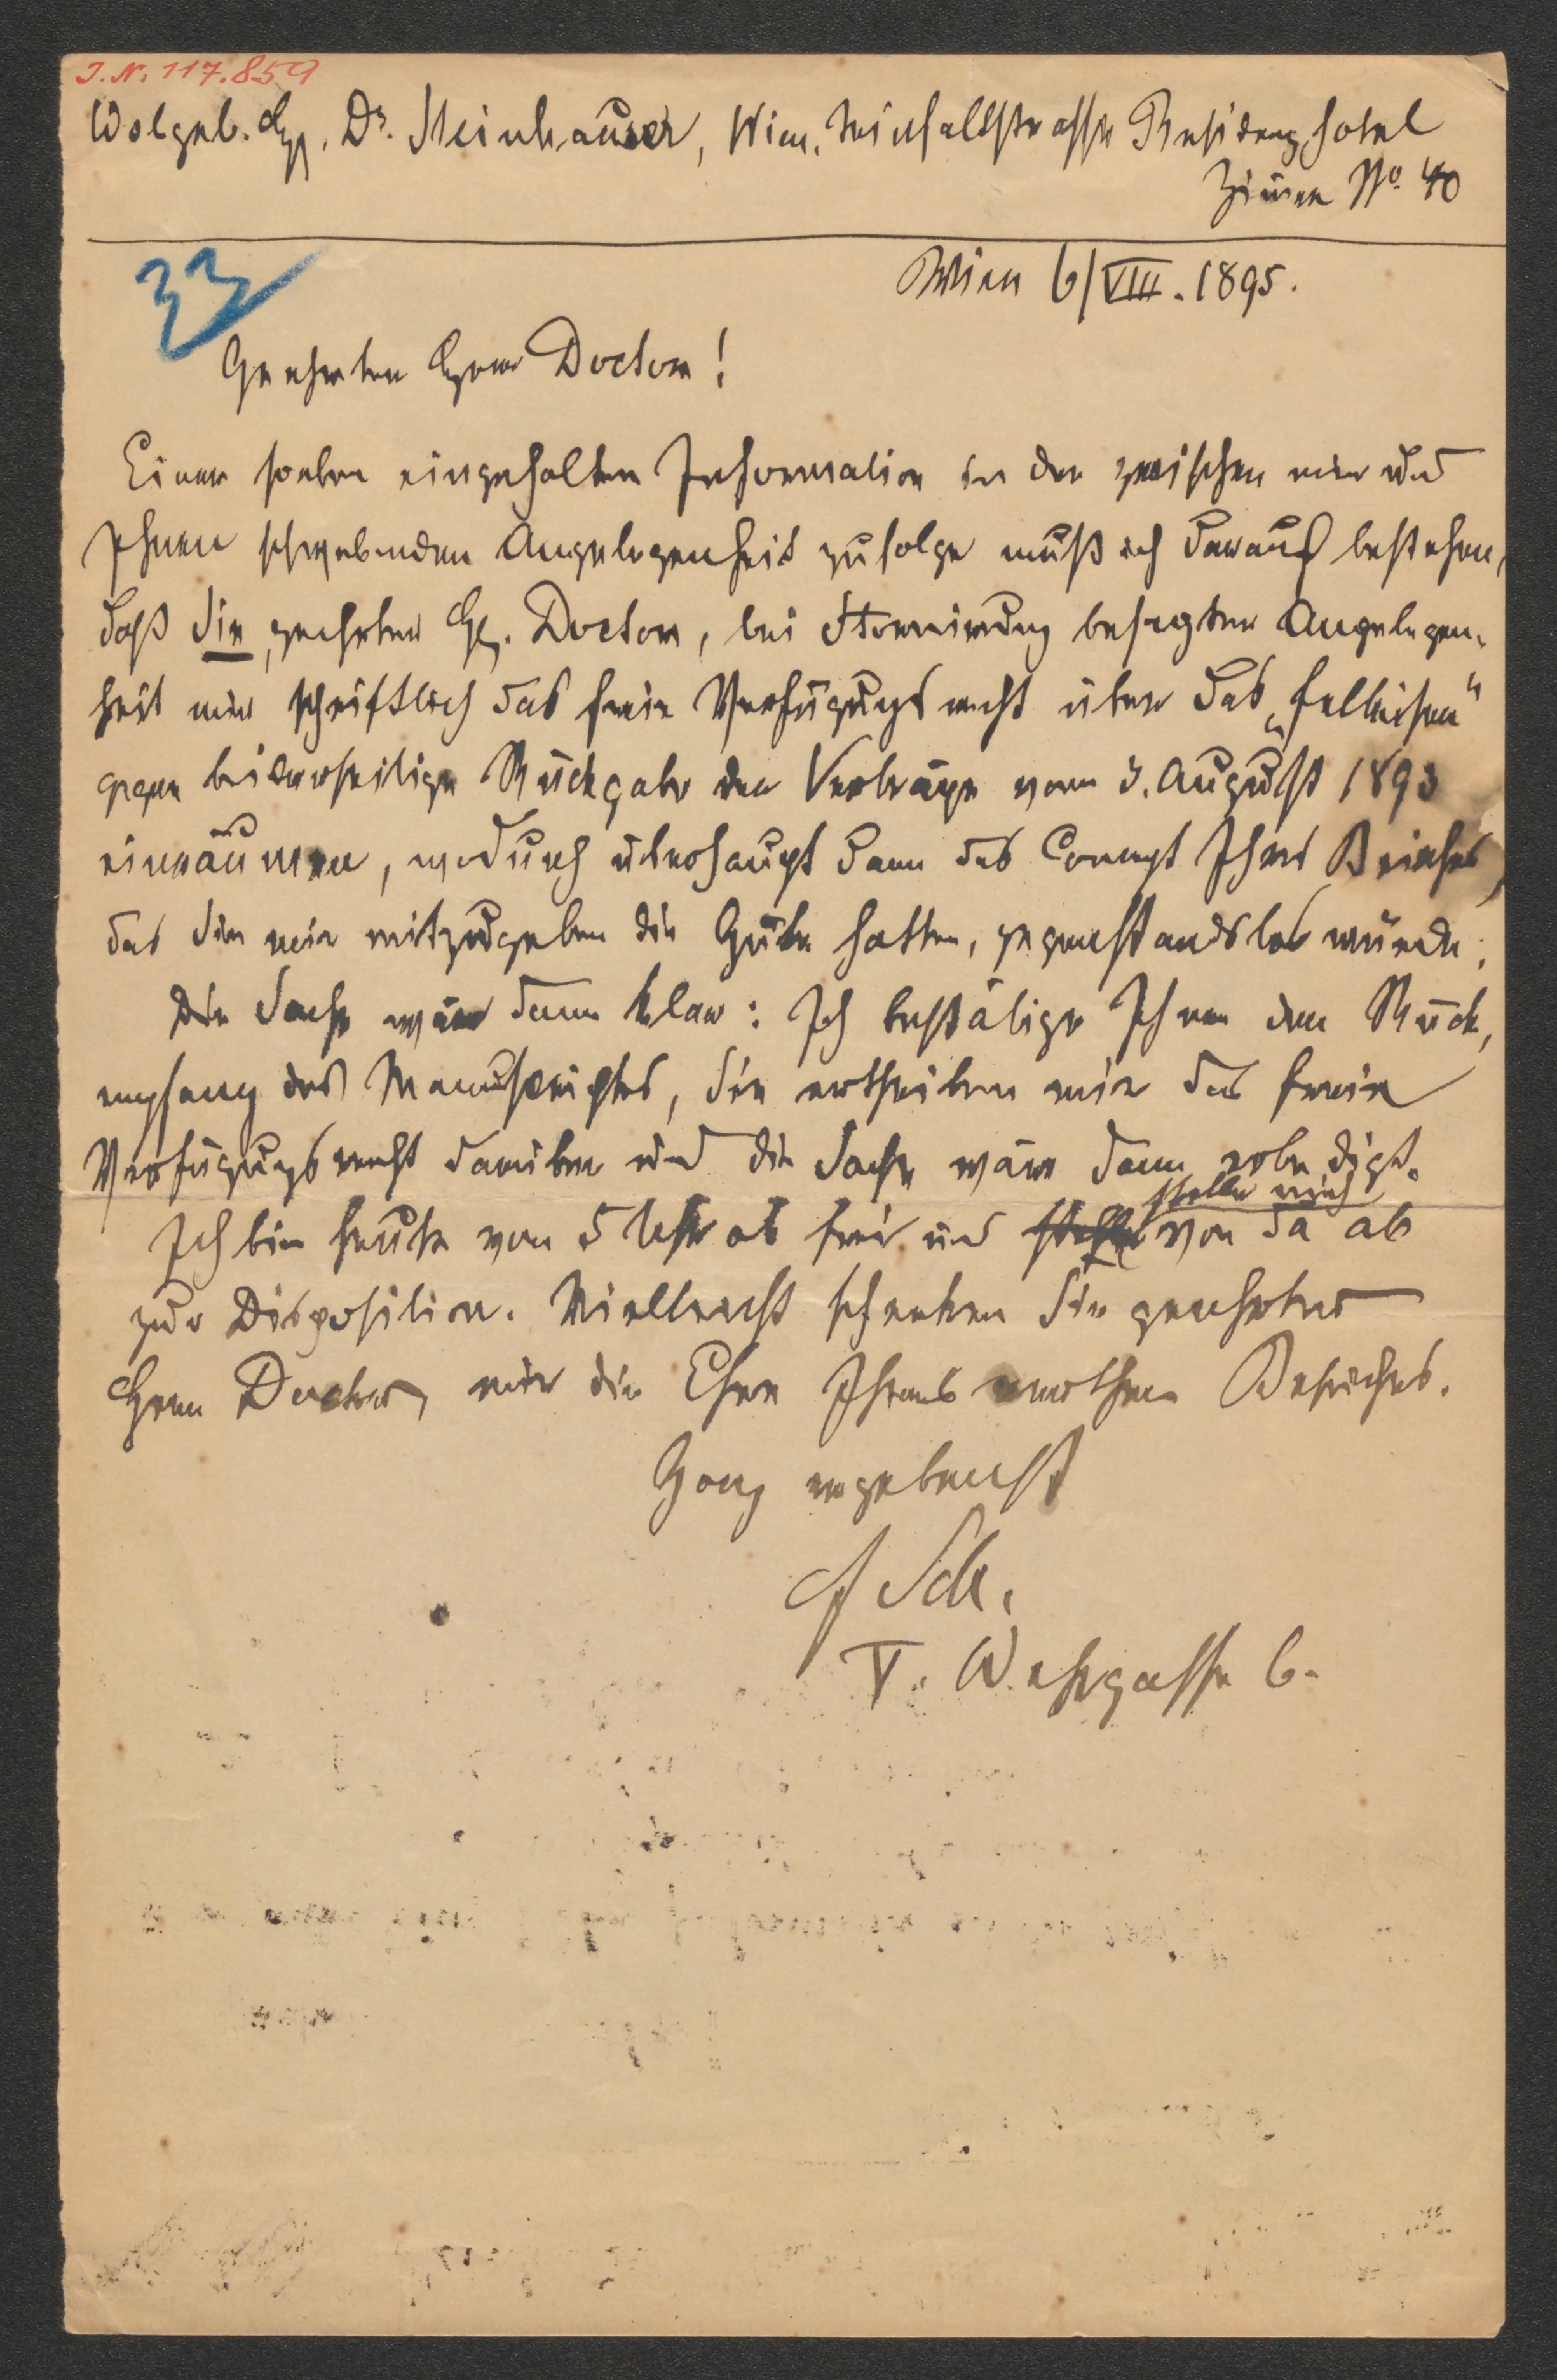 J. N. 117.859
Wolgeb. H. Dr. Steinhauser, Wien. Teinfaltstrasse Residenzhotel
Zimer No. 40
33
Wien 6/VIII. 1895.
Geehrter Herr Doctor!
Einer soeben eingeholten Information in der zwischen mir und
Ihnen schwebenden Angelegenheit zufolge muß ich darauf bestehen,
daß Sie, geehrter H. Doctor, bei Stornirung besagter Angelegen-
heit mir schriftlich das freie Verfügungsrecht über das „Felleisen“
gegen beiderseitige Rückgabe der Verträge vom 3. August 1893
einräumen, wodurch überhaupt dann das Concept Ihres Briefes,
das Sie mir mitzugeben die Güte hatten, gegenstandslos würde.
Die Sache wäre dann klar: Ich bestätige Ihnen den Rück-
empfang des Manuscriptes, Sie ertheilen mir das freie
Verfügungsrecht darüber und die Sache wäre dann erledigt.
stelle mich
Ich bin heute von 5 Uhr ab frei und von da ab
zur Disposition. Vielleicht schenken Sie geehrter
Herr Doctor, mir die Ehre Ihres werthen Besuches.
Ganz ergebenst
V. Wehrgasse 6.